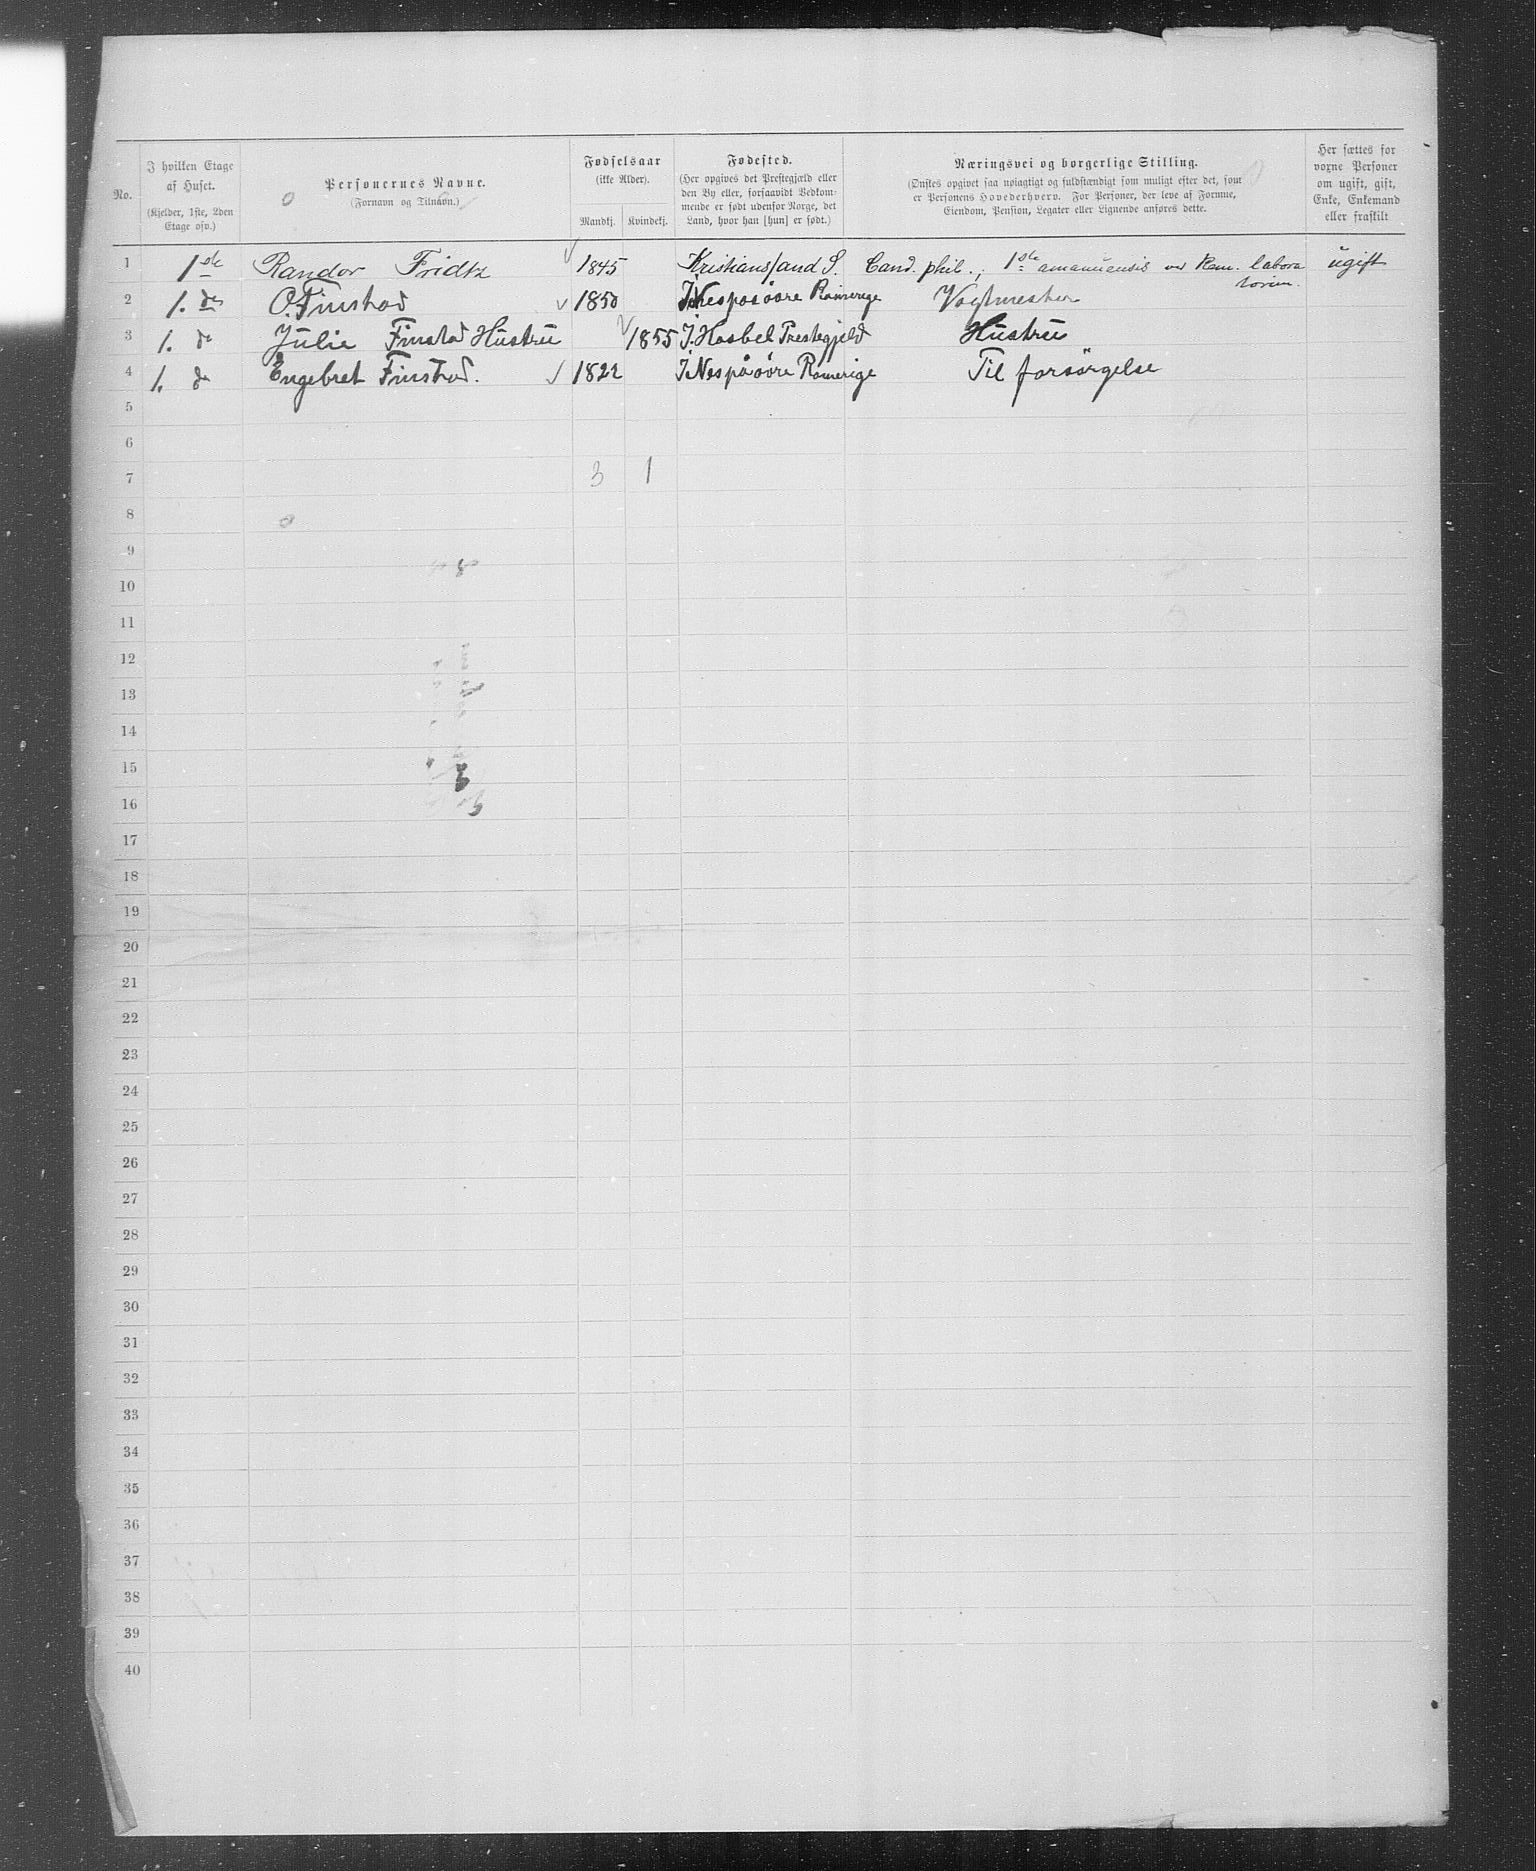 No.
I hvilken Etage af Huset.
(Kjelder, 1ste, 2den Etage osv.)
Personernes Navne.
(Fornavn og Tilnavn.)
Fødselsaar
(ikke Alder).
Mandkj. Kvindekj.
Fødested.
(Her opgives det Prestegjæld eller
den By eller, forsaavidt Vedkom-
mende er født udenfor Norge, det
Land, hvor han [hun] er født.)
Næringsvei og borgerlige Stilling.
(Ønskes opgivet saa nøiagtigt og fuldstændigt som muligt efter det, som
er Personens Hovederhverv. For Personer, der leve af Formue,
Eiendom, Pension, Legater eller Lignende anføres dette.
Her sættes for
voxne Personer
om ugift, gift,
Enke, Enkemand
eller fraskilt
1 1ste Randor Fridtz 1845 Kristianssand S. Cand. phil., 1ste amanuensis ved Kem. labora ugift
torium.
2 1. do O. Finstad 1850 I. Nes på övre Romerige Vagtmester
3 1. do Julie Finstad Hustru 1855 I. Hasbel Prestegjeld Hustru
4 1. do Engebret Finstad. 1822 I. Nes på övre Romerige Til forsörgelse
5
6
7 3 1
8
9
10
11
12
13
14
15
16
17
18
19
20
21
22
23
24
25
26
27
28
29
30
31
32
33
34
35
36
37
38
39
40